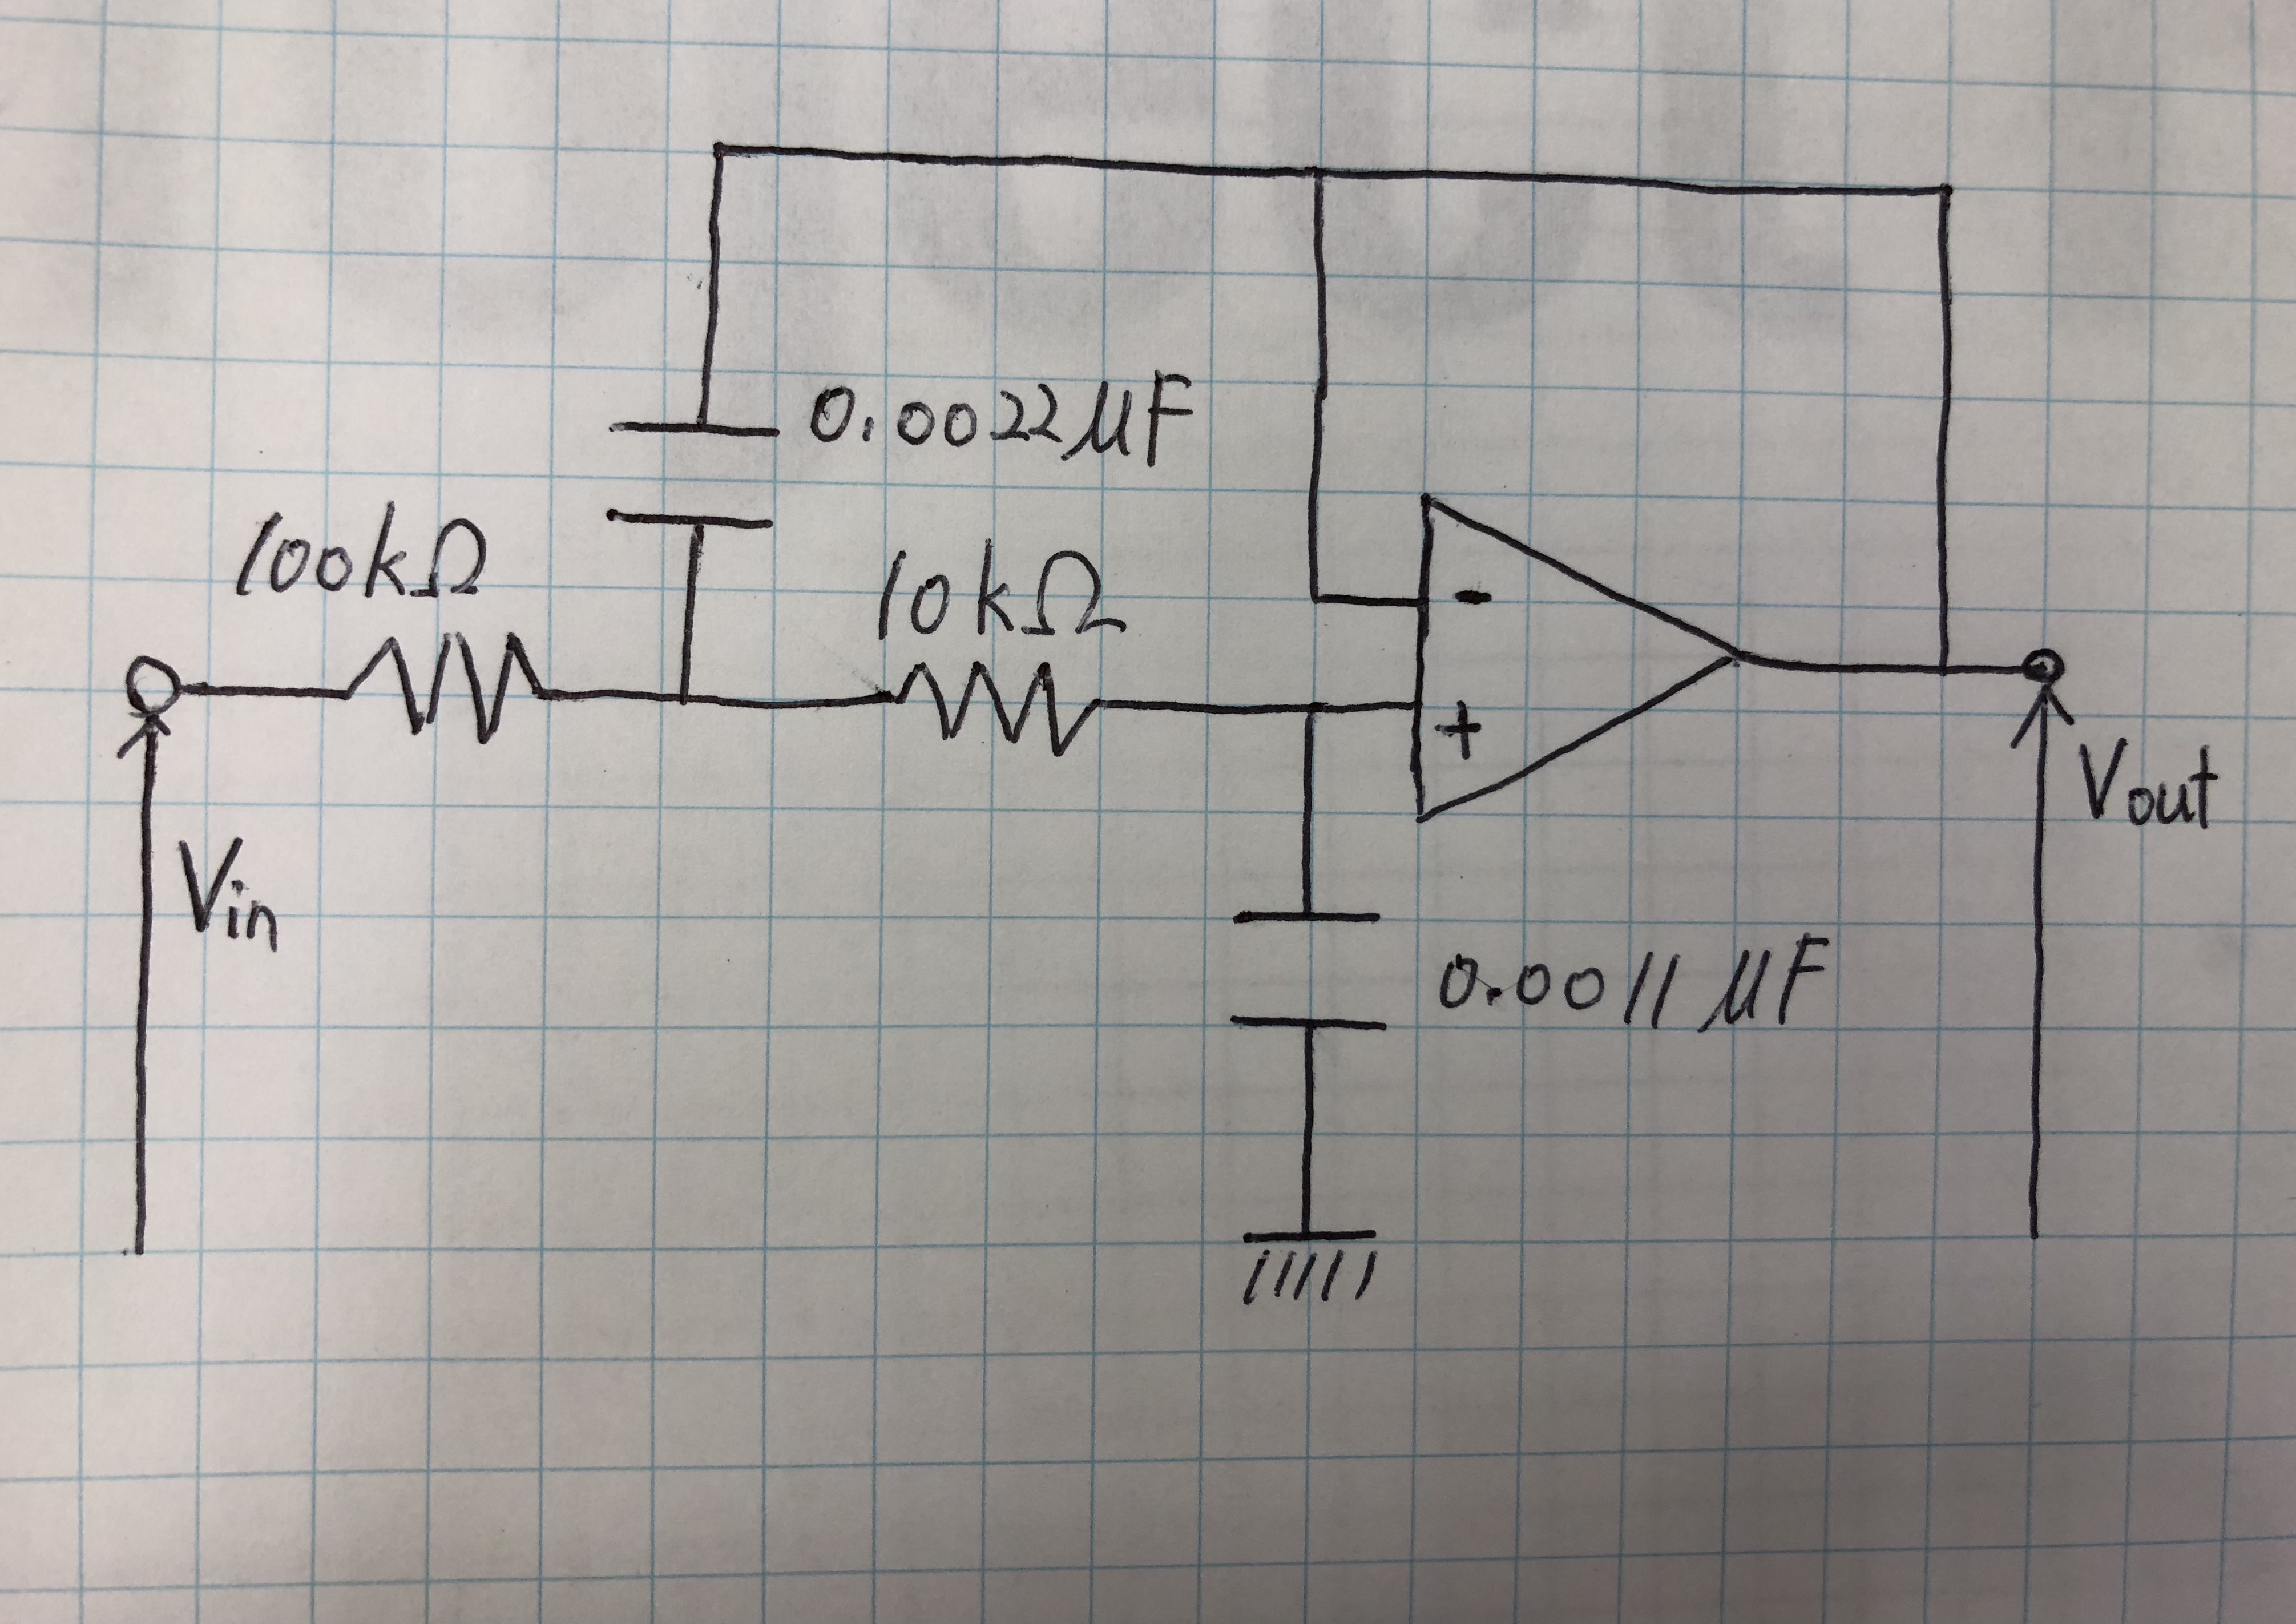 0.0022μF
100kΩ
10kΩ
-
+
Vout
Vin
0.0011μF